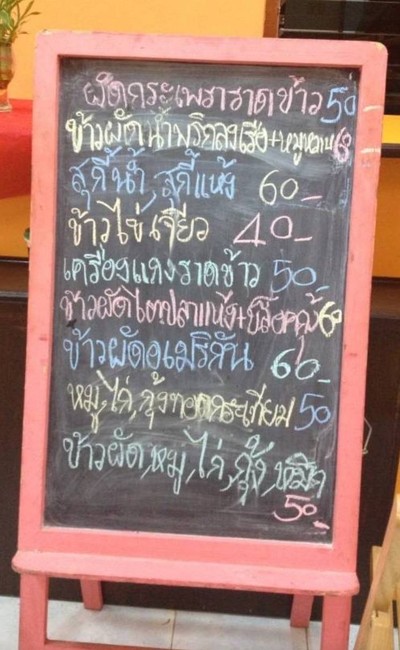 ผัดกระเพราราดข้าว 50
ข้าวผัดน้ำพริกลงเรือ+หมูหวาน 60
สุกี้น้ำ, สุกี้แห้ง 60_
ข้าวไข่เจียว 40_
เครื่องแกงราดข้าว 50_
ข้าวผัดไตปลาแห้ง+ 60
ข้าวผัดอเมริกัน 60_
หมู,ไก่,กุ้งทอดกระเทียม 50
ข้าวผัด,หมู,ไก่,กุ้ง,หมึก
50_